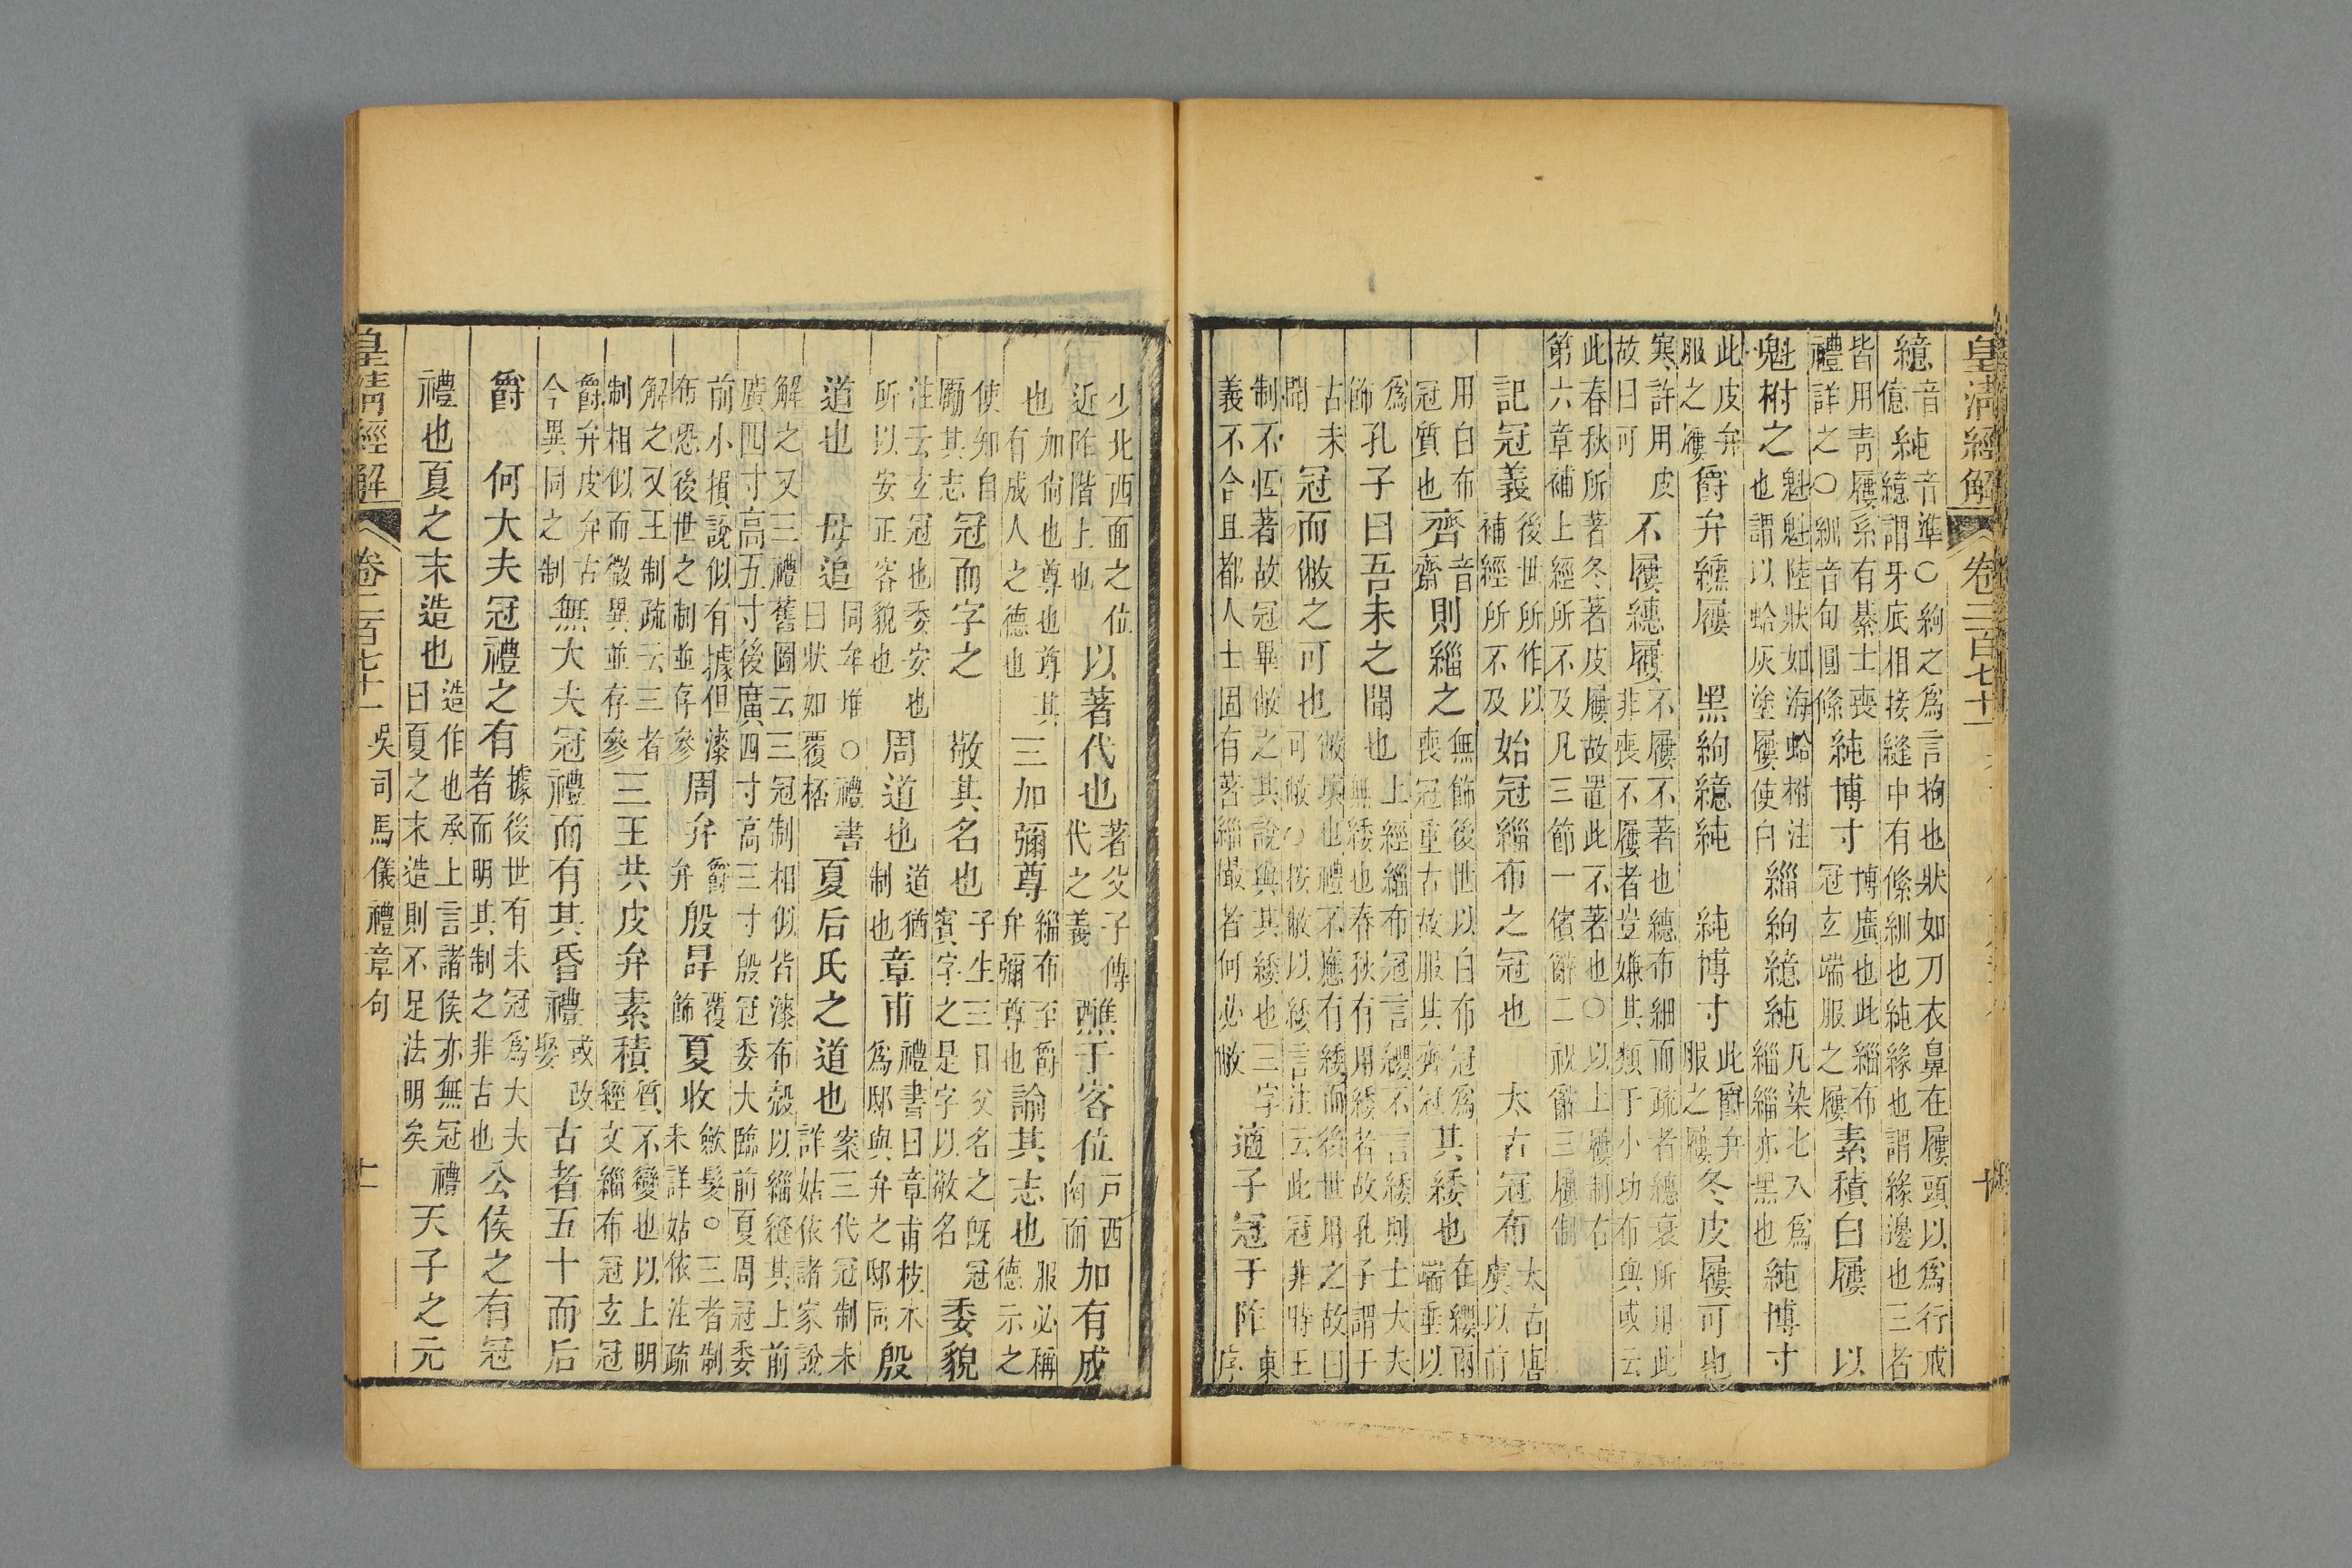 皇清經解 卷二百七十一 十
繶音億純音準〇絇之爲言拘也狀如刀衣鼻在屨頭以爲行戒繶謂牙底相接縫中有絛紃也純緣也謂緣邊也三者
皆用青屨系有綦士喪禮詳之〇紃音旬圓絛純博寸博廣也此緇布冠玄端服之屨素積白屨 以
魁柎之魁魁陸狀如海蛤柎注也謂以蛤灰塗屨使白緇絇繶純凡染七入爲緇緇亦黑也純博寸
此皮弁服之屨爵弁纁屨 黑絇繶純 純博寸此爵弁服之屨冬皮屨可也
寒許用皮故曰可不屨繐屨不屨不著也繐布細而疏者繐衰所用此非喪不屨者豈嫌其類于小功布與或云
此春秋所著冬著皮屨故置此不著也〇以上屨制右第六章補上經所不及凡三節一儐辭二祝辭三屨制
記冠義後世所作以補經所不及始冠緇布之冠也 太古冠布太古唐虞以前
用白布冠質也齊音齋則緇之無飾後世以白布冠爲喪冠重古故服其齊冠其緌也在纓兩端垂以
爲飾孔子曰吾未之聞也上經緇布冠言纓不言緌則士大夫無緌也春秋有用緌者故孔子謂于
古未聞冠而敝之可也敝壞也禮不應有緌而後世用之故曰可敝〇按敝以緌言注云此冠非時王
制不恆著故冠畢敝之其說與其緌也三字義不合且都人士固有著緇撮者何必敝適子冠于阼東序
少北西面之位近阼階上也以著代也著父子傳代之義醮于客位戶西南面加有成
也加尚也尊也尊其有成人之德也三加彌尊緇布至爵弁彌尊也諭其志也服必稱德示之
使知自勵其志冠而字之 敬其名也子生三日父名之旣冠賓字之是字以敬名委貌
注云玄冠也委安也所以安正容貌也周道也道猶制也章甫禮書曰章甫枝木爲邸與弁之邸同殷
道也 毋追同牟堆〇禮書曰狀如覆桮夏后氏之道也案三代冠制未詳姑依諸家說
解之又三禮舊圖云三冠制相似皆漆布殼以緇縫其上前廣四寸高五寸後廣四寸高三寸殷冠委大臨前夏周冠委
前小損說似有據但漆布恐後世之制並存參周弁爵弁殷冔覆飾夏收歛髮〇三者制未詳姑依注疏
解之又王制疏云三者制相似而微異並存參三王共皮弁素積質不變也以上明經文緇布冠玄冠
爵弁皮弁古今異同之制無大夫冠禮而有其昏禮或改娶古者五十而后
爵 何大夫冠禮之有據後世有未冠爲大夫者而明其制之非古也公侯之有冠
禮也夏之末造也造作也承上言諸侯亦無冠禮曰夏之末造則不足法明矣天子之元
皇清經解 卷二百七十一 吳司馬儀禮章句 十一